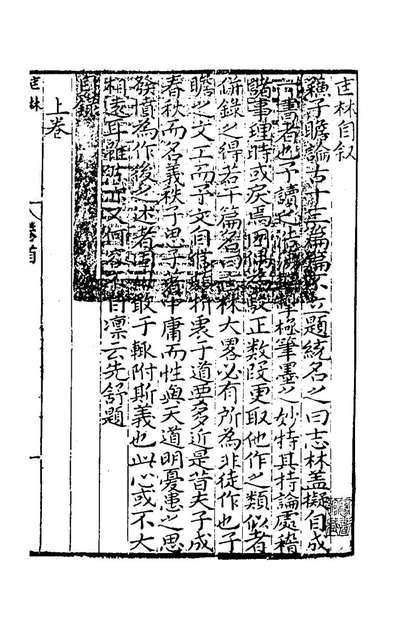 匡林自叙
蘇子瞻論古十三篇篇不立題統名之曰志林蓋擬自成
一書者也予讀之極筆墨之妙特其持論處稽
諸事理時或戾焉因正數段更取他作之類似者
併錄之得若干篇名曰匡林大畧必有所為非徒作也子
瞻之文工而予文自折衷子道要多近是昔夫子成
春秋而名義秩子思子著中庸而性與天道明憂患之思
發憤為作後之述者固敢于輙附斯義也此心或不大
相遠耳雖又何容不凛云先舒題
上卷
匡林
卷首
一